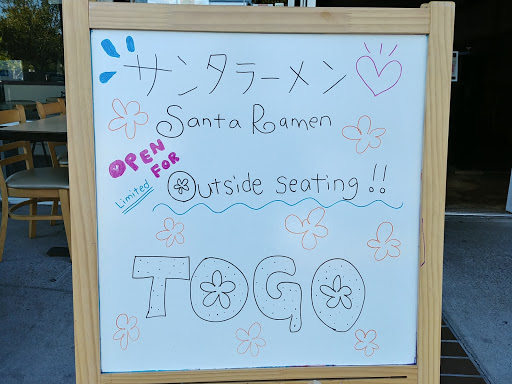 サンタラーメン
Santa Ramen
OPEN FOR
Limited
Outside seating!!
TOGO